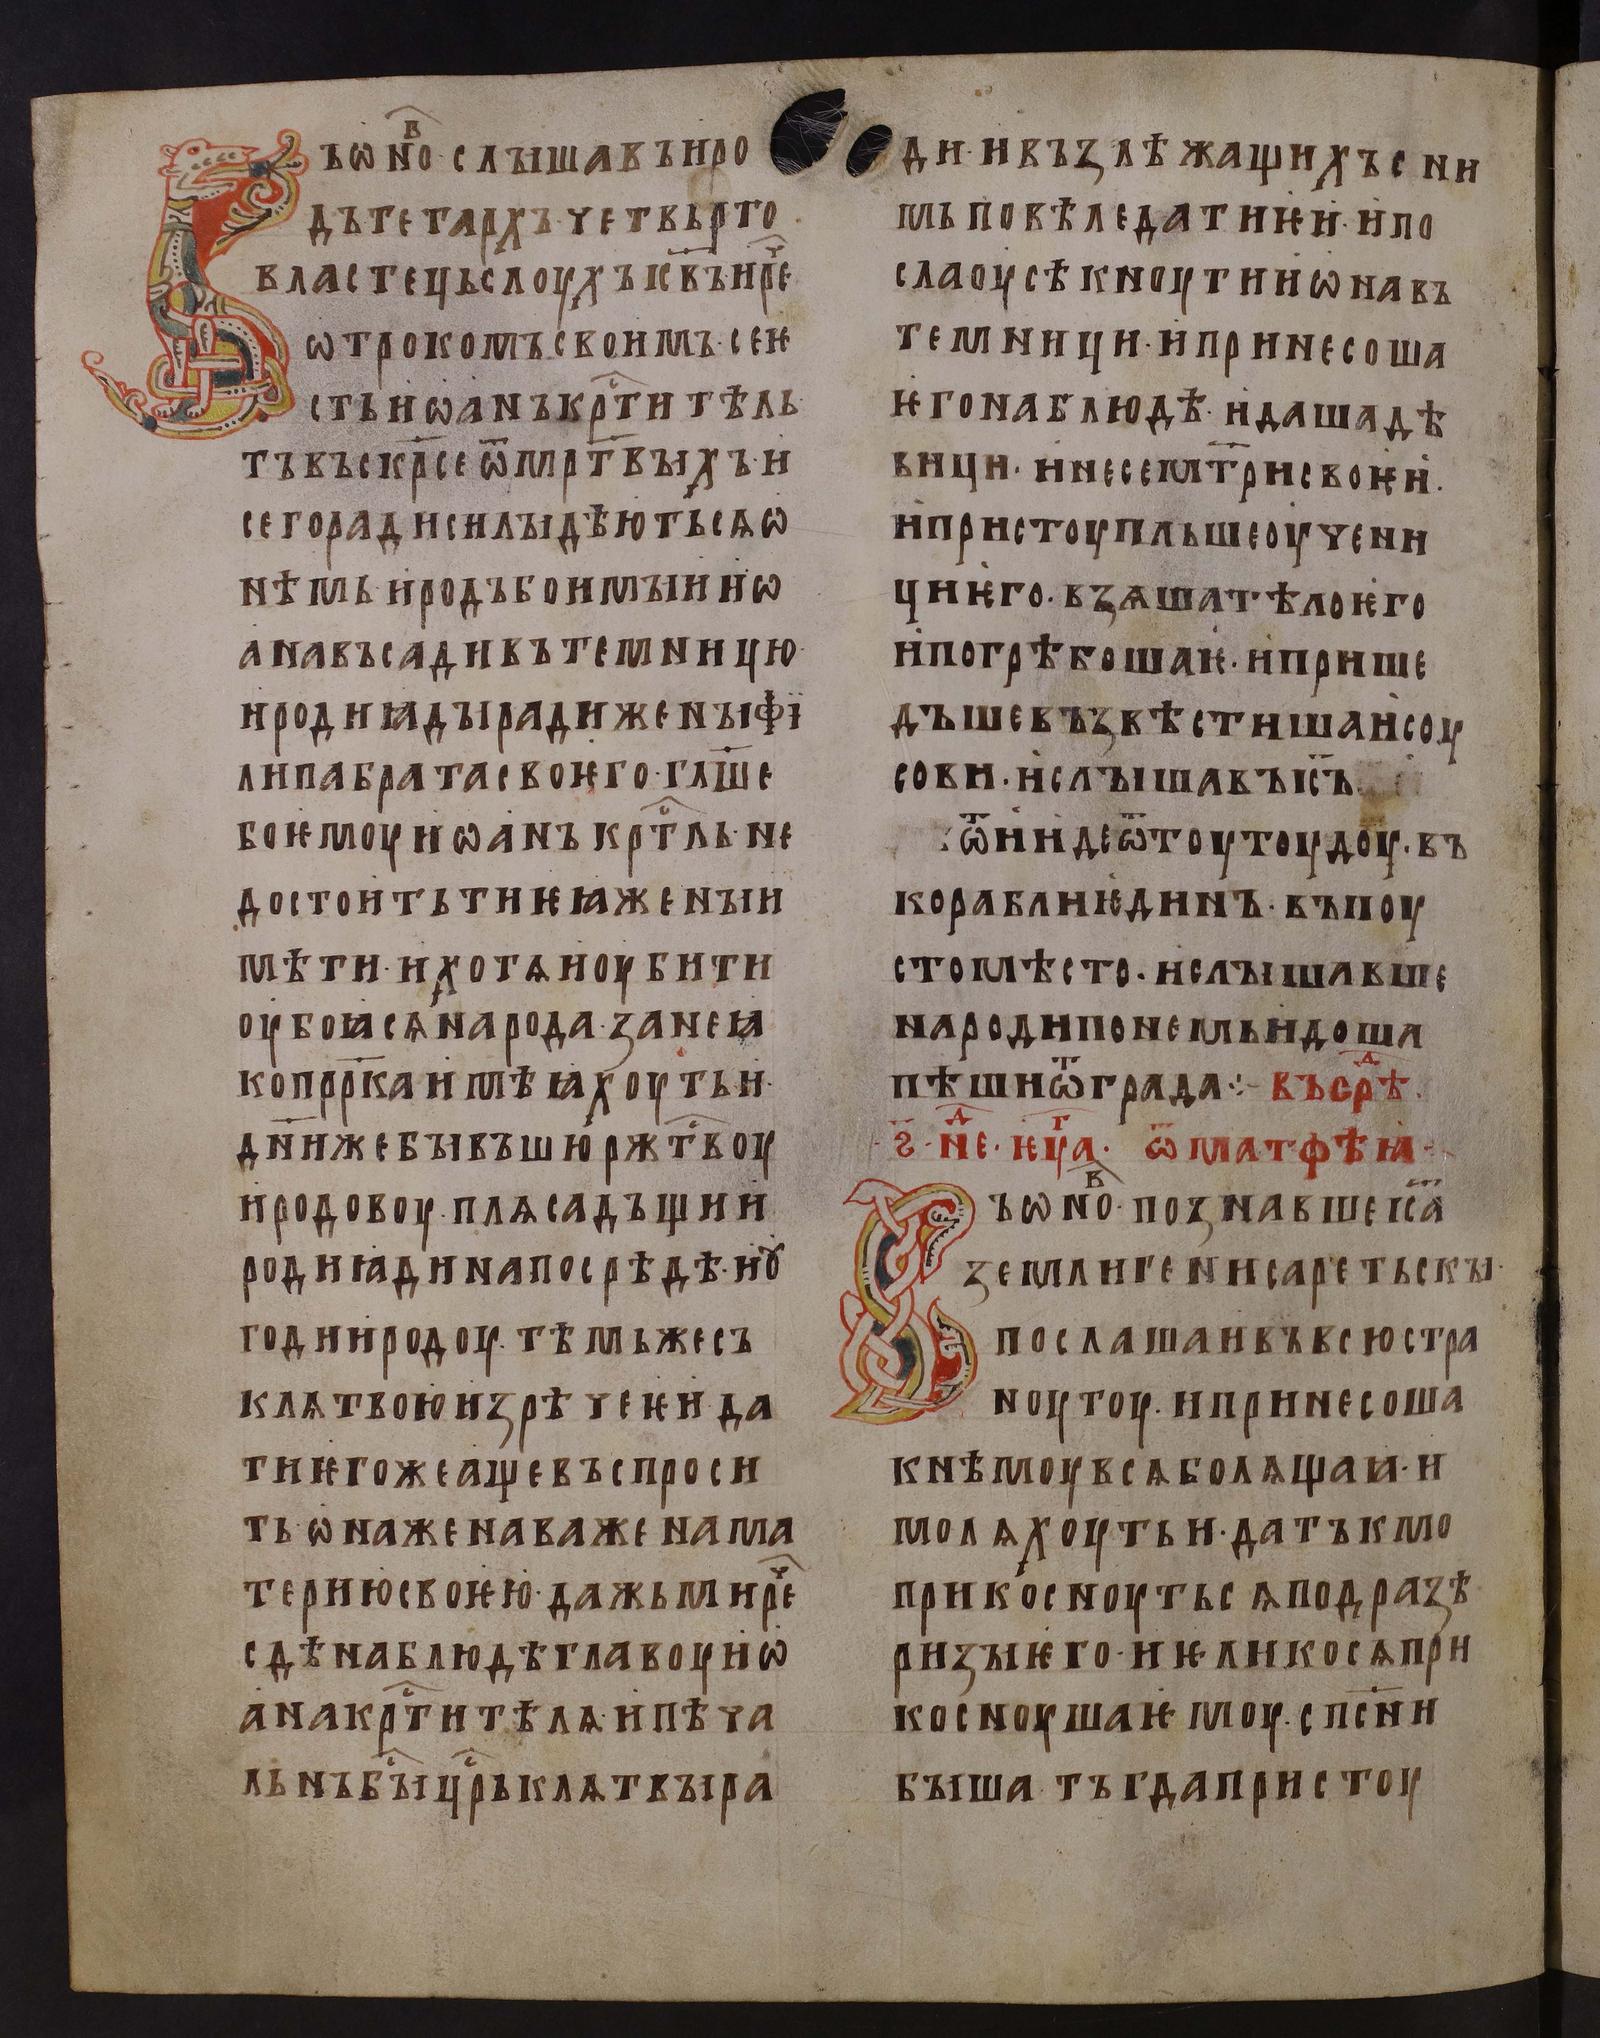 Въ ѡно в҇ · слышавъ иро
дъ тетарх҃ъ · четвьрто
властець слоухъ ıс҃въ и реч҇е
ѡтрокомъ своимъ · се ѥ
сть иѡанъ крс҇титѣль
тъ въскр҃се ѿ мрт҃выхъ · и
сего ради силы дѣють сѧ ѡ
нѣмь · иродъ бо имыи иѡ
ана въсади въ темницю ·
иродиꙗды ради жены фı
липа брата своѥго · гл҃ше
бо ѥмоу иѡанъ крс҇тль · не
достоить ти ѥꙗ жены и
мѣти · и хотѧ и оубити
оубоꙗ сѧ народа · зане ꙗ
ко прр҃ка имѣꙗхоуть и ·
дн҃и же бывъшю ржс҇твоу
иродовоу · плѧса дъщи и
родиꙗди на посрѣдѣ · и ꙋ
годи иродоу · тѣмь же съ
клѧтвою изрѣче ѥи да
ти ѥгоже аще въспроси
ть · ѡна же наважена ма
терию своѥю · дажь ми реч҇е
сдѣ на блюдѣ главоу иѡ
ана крс҇тителѧ · и пѣча
льнъ быс҇ црс҇рь клѧтвы ра
ди · и възлѣжащихъ с ни
мь повѣле дати ѥи · и по
сла оусѣкноути иѡна въ
темници · и принесоша
ѥго на блюдѣ · и даша дѣ
вици · и несе мт҃ри своѥи ·
и пристоупльше оучени
ци ѥго · взѧша тѣло ѥго
и погрѣбоша ѥ · и прише
дъше възвѣстиша исоу
сови · и слышавъ ıс҃ъ
ѿиде ѿтоутоудоу · въ
корабли ѥдинъ · въ поу
сто мѣсто · и слышавше
народи по немь идоша
пѣши ѿ града ჻ въ срѣд҇ ·
ѕ҃ · нед҇ · ѥуаг҇ · ѿ матфѣꙗ ·
Въ ѡно в҇ · познавше ıс҃а
земли генисаретьскы ·
послаша и въ всю стра
ноу тоу · и принесоша
к нѣмоу всѧ болѧщаꙗ · и
молѧхоуть и · да тъкмо
прикосноуть сѧ подразѣ
ризы ѥго · и ѥлико сѧ при
косноуша ѥмоу · сп҃сни
быша тъгда пристоу